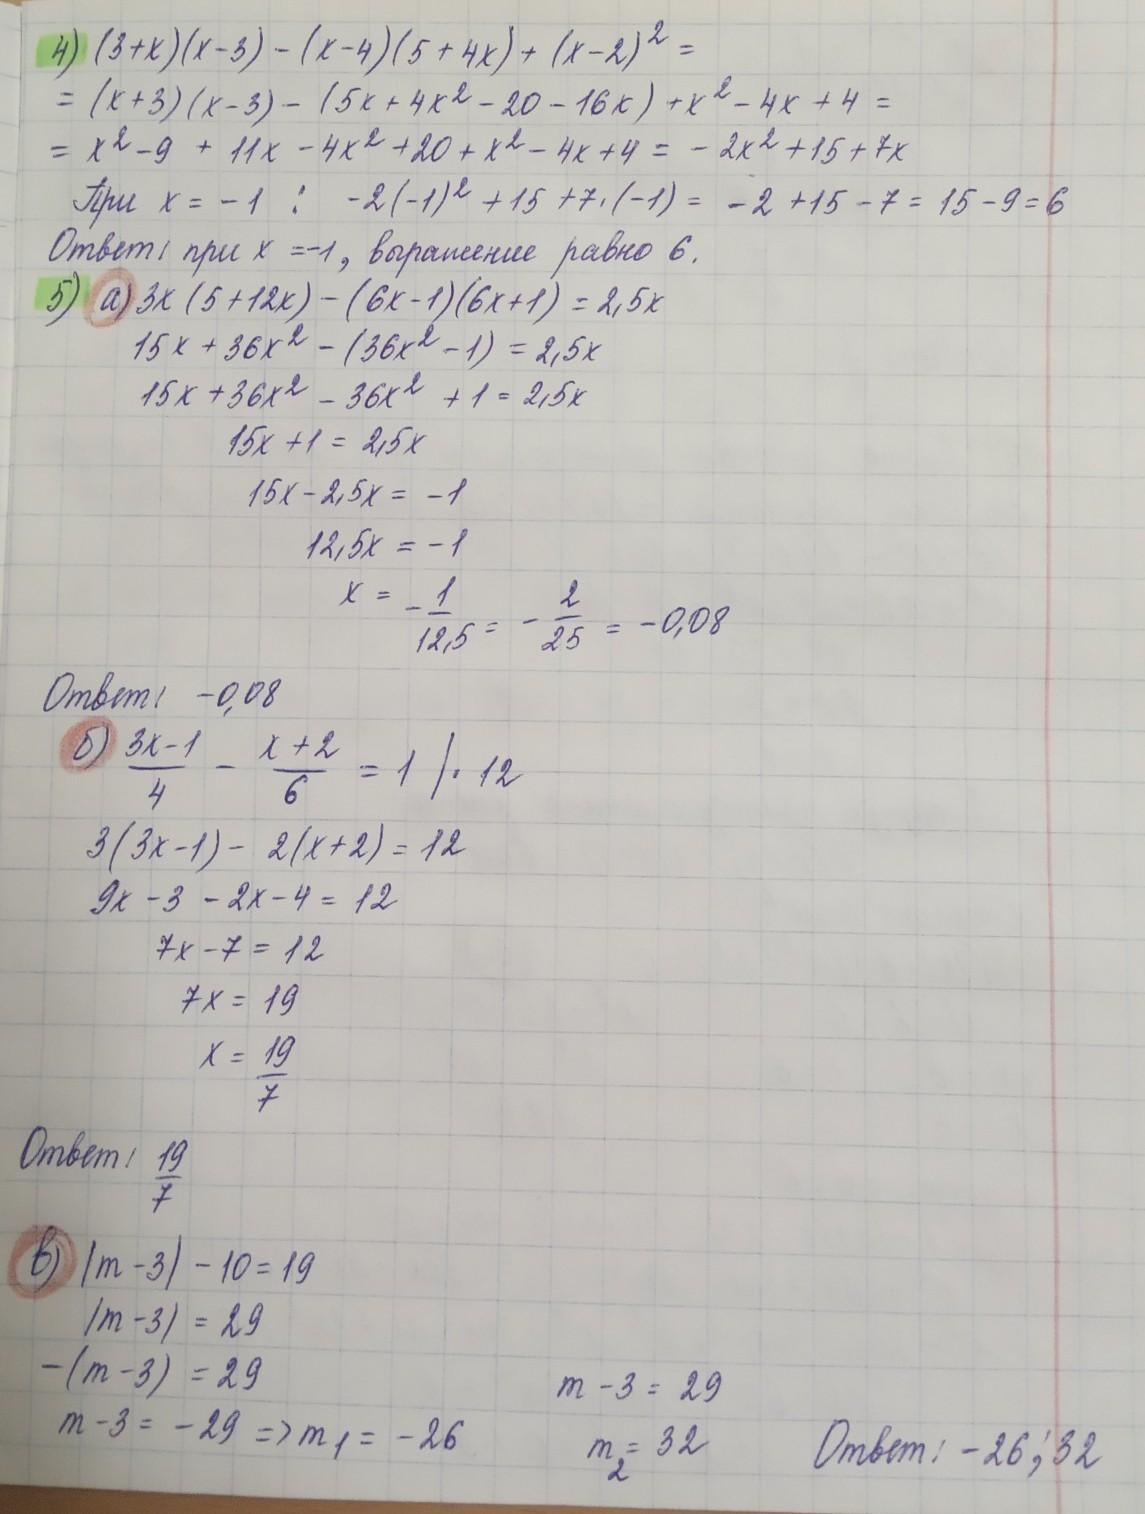 4) (3+x)(x-3) - (x-4)(5+4x) + (x-2)² =
= (x+3)(x-3) - (5x+4x² - 20 - 16x) + x² - 4x + 4 =
= x² - 9 + 11x - 4x² + 20 + x² - 4x + 4 = - 2x² + 15 + 7x
При x = -1 : -2(-1)² + 15 + 7·(-1) = -2 + 15 - 7 = 15 - 9 = 6
Ответ: при x = -1, выражение равно 6.
5) а) 3x(5+12x) - (6x-1)(6x+1) = 2,5x
15x + 36x² - (36x² - 1) = 2,5x
15x + 36x² - 36x² + 1 = 2,5x
15x + 1 = 2,5x
15x - 2,5x = -1
12,5x = -1
x = -1/12,5 = -2/25 = -0,08
Ответ: -0,08
б) (3x-1)/4 - (x+2)/6 = 1 |· 12
3(3x-1) - 2(x+2) = 12
9x - 3 - 2x - 4 = 12
7x - 7 = 12
7x = 19
x = 19/7
Ответ: 19/7
в) |m-3| - 10 = 19
|m-3| = 29
-(m-3) = 29
m-3 = 29
m-3 = -29 => m₁ = -26
m₂ = 32
Ответ: -26; 32